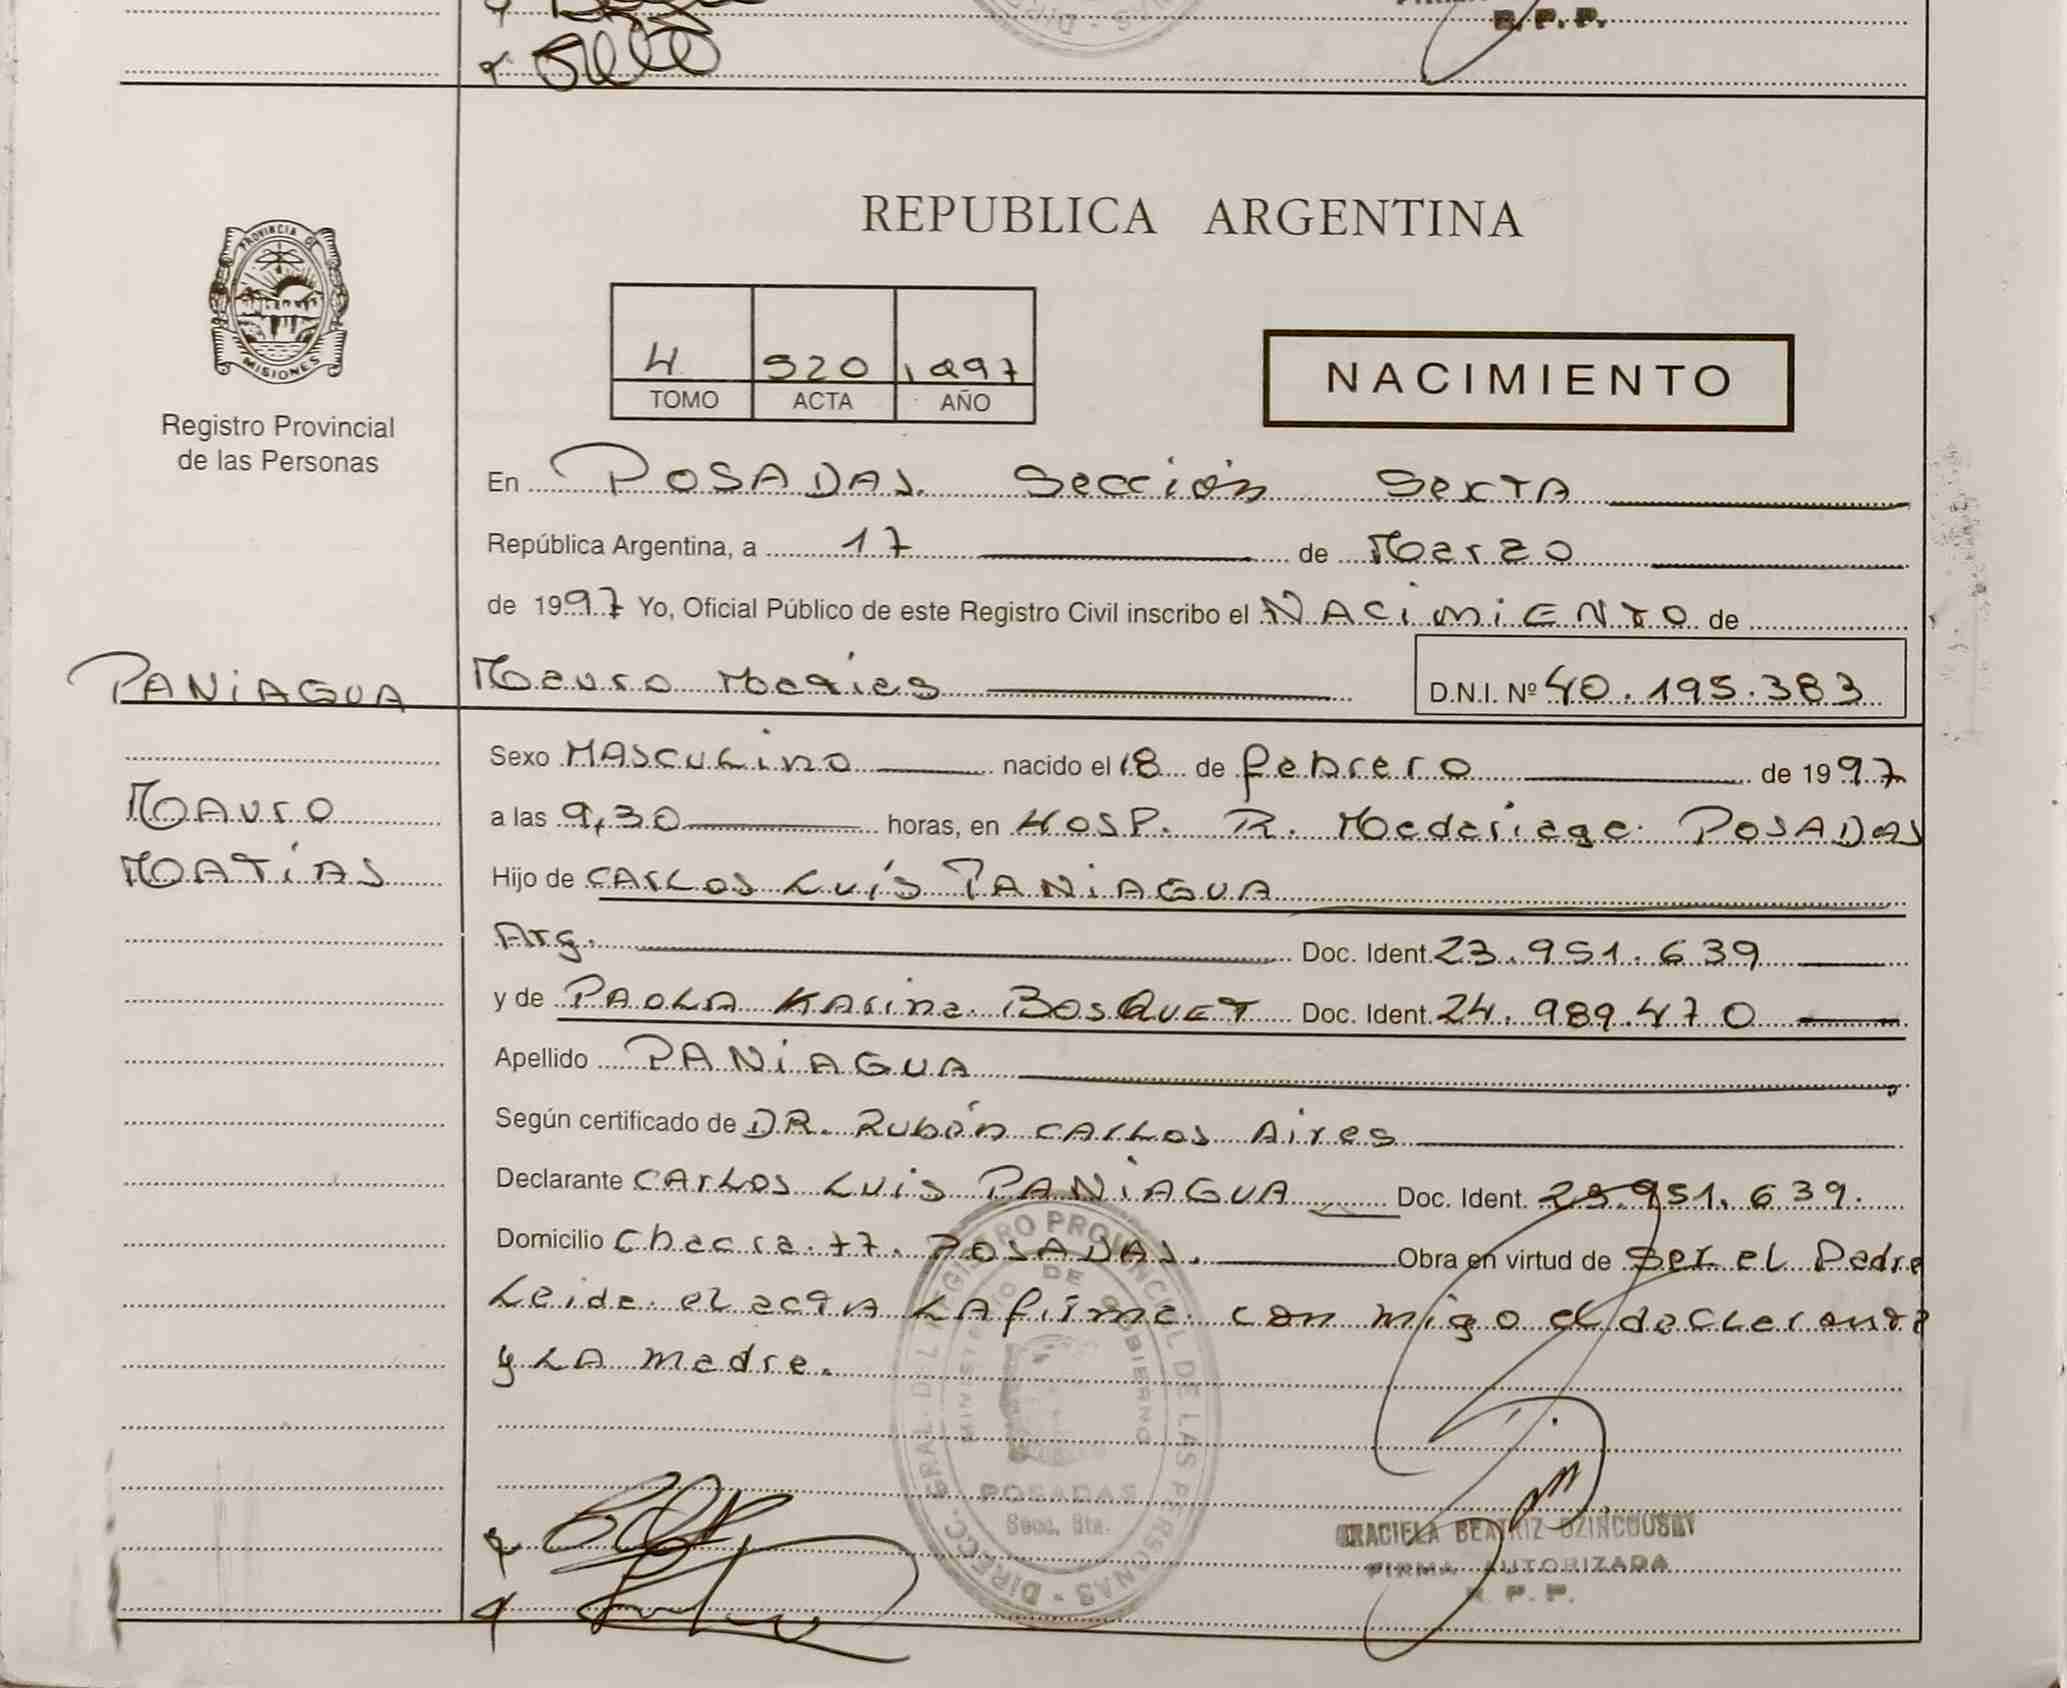 R.P.P.
REPUBLICA ARGENTINA
PROVINCIA DE
MISIONES
Registro Provincial
de las Personas
4 920 1997
TOMO ACTA AÑO
NACIMIENTO
En POSADAS. Sección Sexta
República Argentina, a 17 de Marzo
de 1997 Yo, Oficial Público de este Registro Civil inscribo el NACIMIENTO de
PANIAGUA Mauro Matias D.N.I. Nº 40.195.383
Sexo MASCULINO nacido el 18 de febrero de 1997
MAURO
a las 9,30 horas, en HOSP. R. Madariaga. POSADAS
MATÍAS
Hijo de CARLOS LUÍS PANIAGUA
Arg. Doc. Ident. 23.951.639
y de PAOLA Karina BOSQUET Doc. Ident. 24.989.470
Apellido PANIAGUA
Según certificado de DR. Rubén CARLOS Aires
Declarante CARLOS LUIS PANIAGUA Doc. Ident. 23.951.639.
Domicilio Chacra 77. POSADAS. Obra en virtud de ser el Padre
Leida el acta LA firma con migo el declarante
y LA madre.
DIRECC. GRAL. DEL REGISTRO PROVINCIAL DE LAS PERSONAS
MINISTERIO DE GOBIERNO
POSADAS
Secc. 6ta.
GRACIELA BEATRIZ
FIRMA AUTORIZADA
R.P.P.